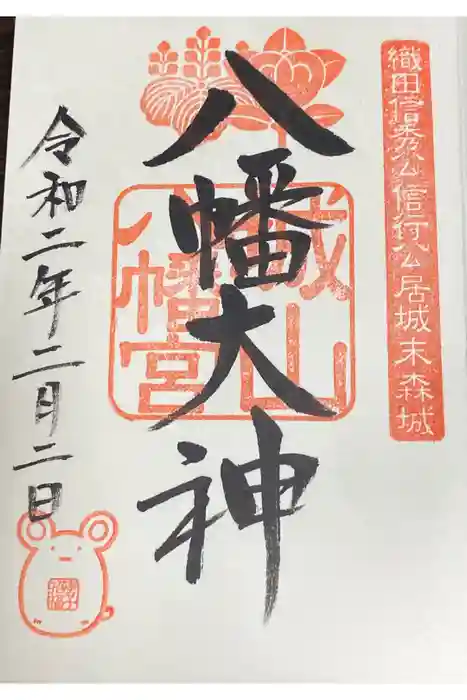 織田信秀公信行公居城末森城
八幡大神
城山
八幡宮
令和二年二月二日